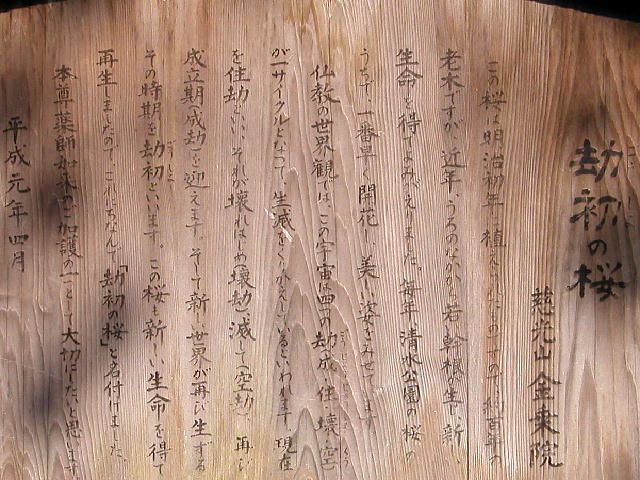 劫初の桜
慈光山 金乗院
この桜は明治初年に植えられたもので約百年の
老木ですが、近年、うろのなかから若い幹根が生じ、新しい
生命を得てよみがえりました。毎年、清水公園の桜の
うちで、一番早く開花し、美しい姿をみせてます。
仏教の世界観では、この宇宙は四つの劫(成・住・壊・空)
が一サイクルとなって、生滅をくりかえしているといわれます。現在
を住劫といい、それが壊れはじめ(壊劫)、滅して(空劫)、再び
成立期(成劫)を迎えます。そして新しい世界が再び生ずる
その時期を劫初といいます。この桜も新しい生命を得て
再生しましたので、これにちなんで、「劫初の桜」と名付けました。
本尊薬師如来のご加護の一つとして大切にしたいと思います。
平成元年四月